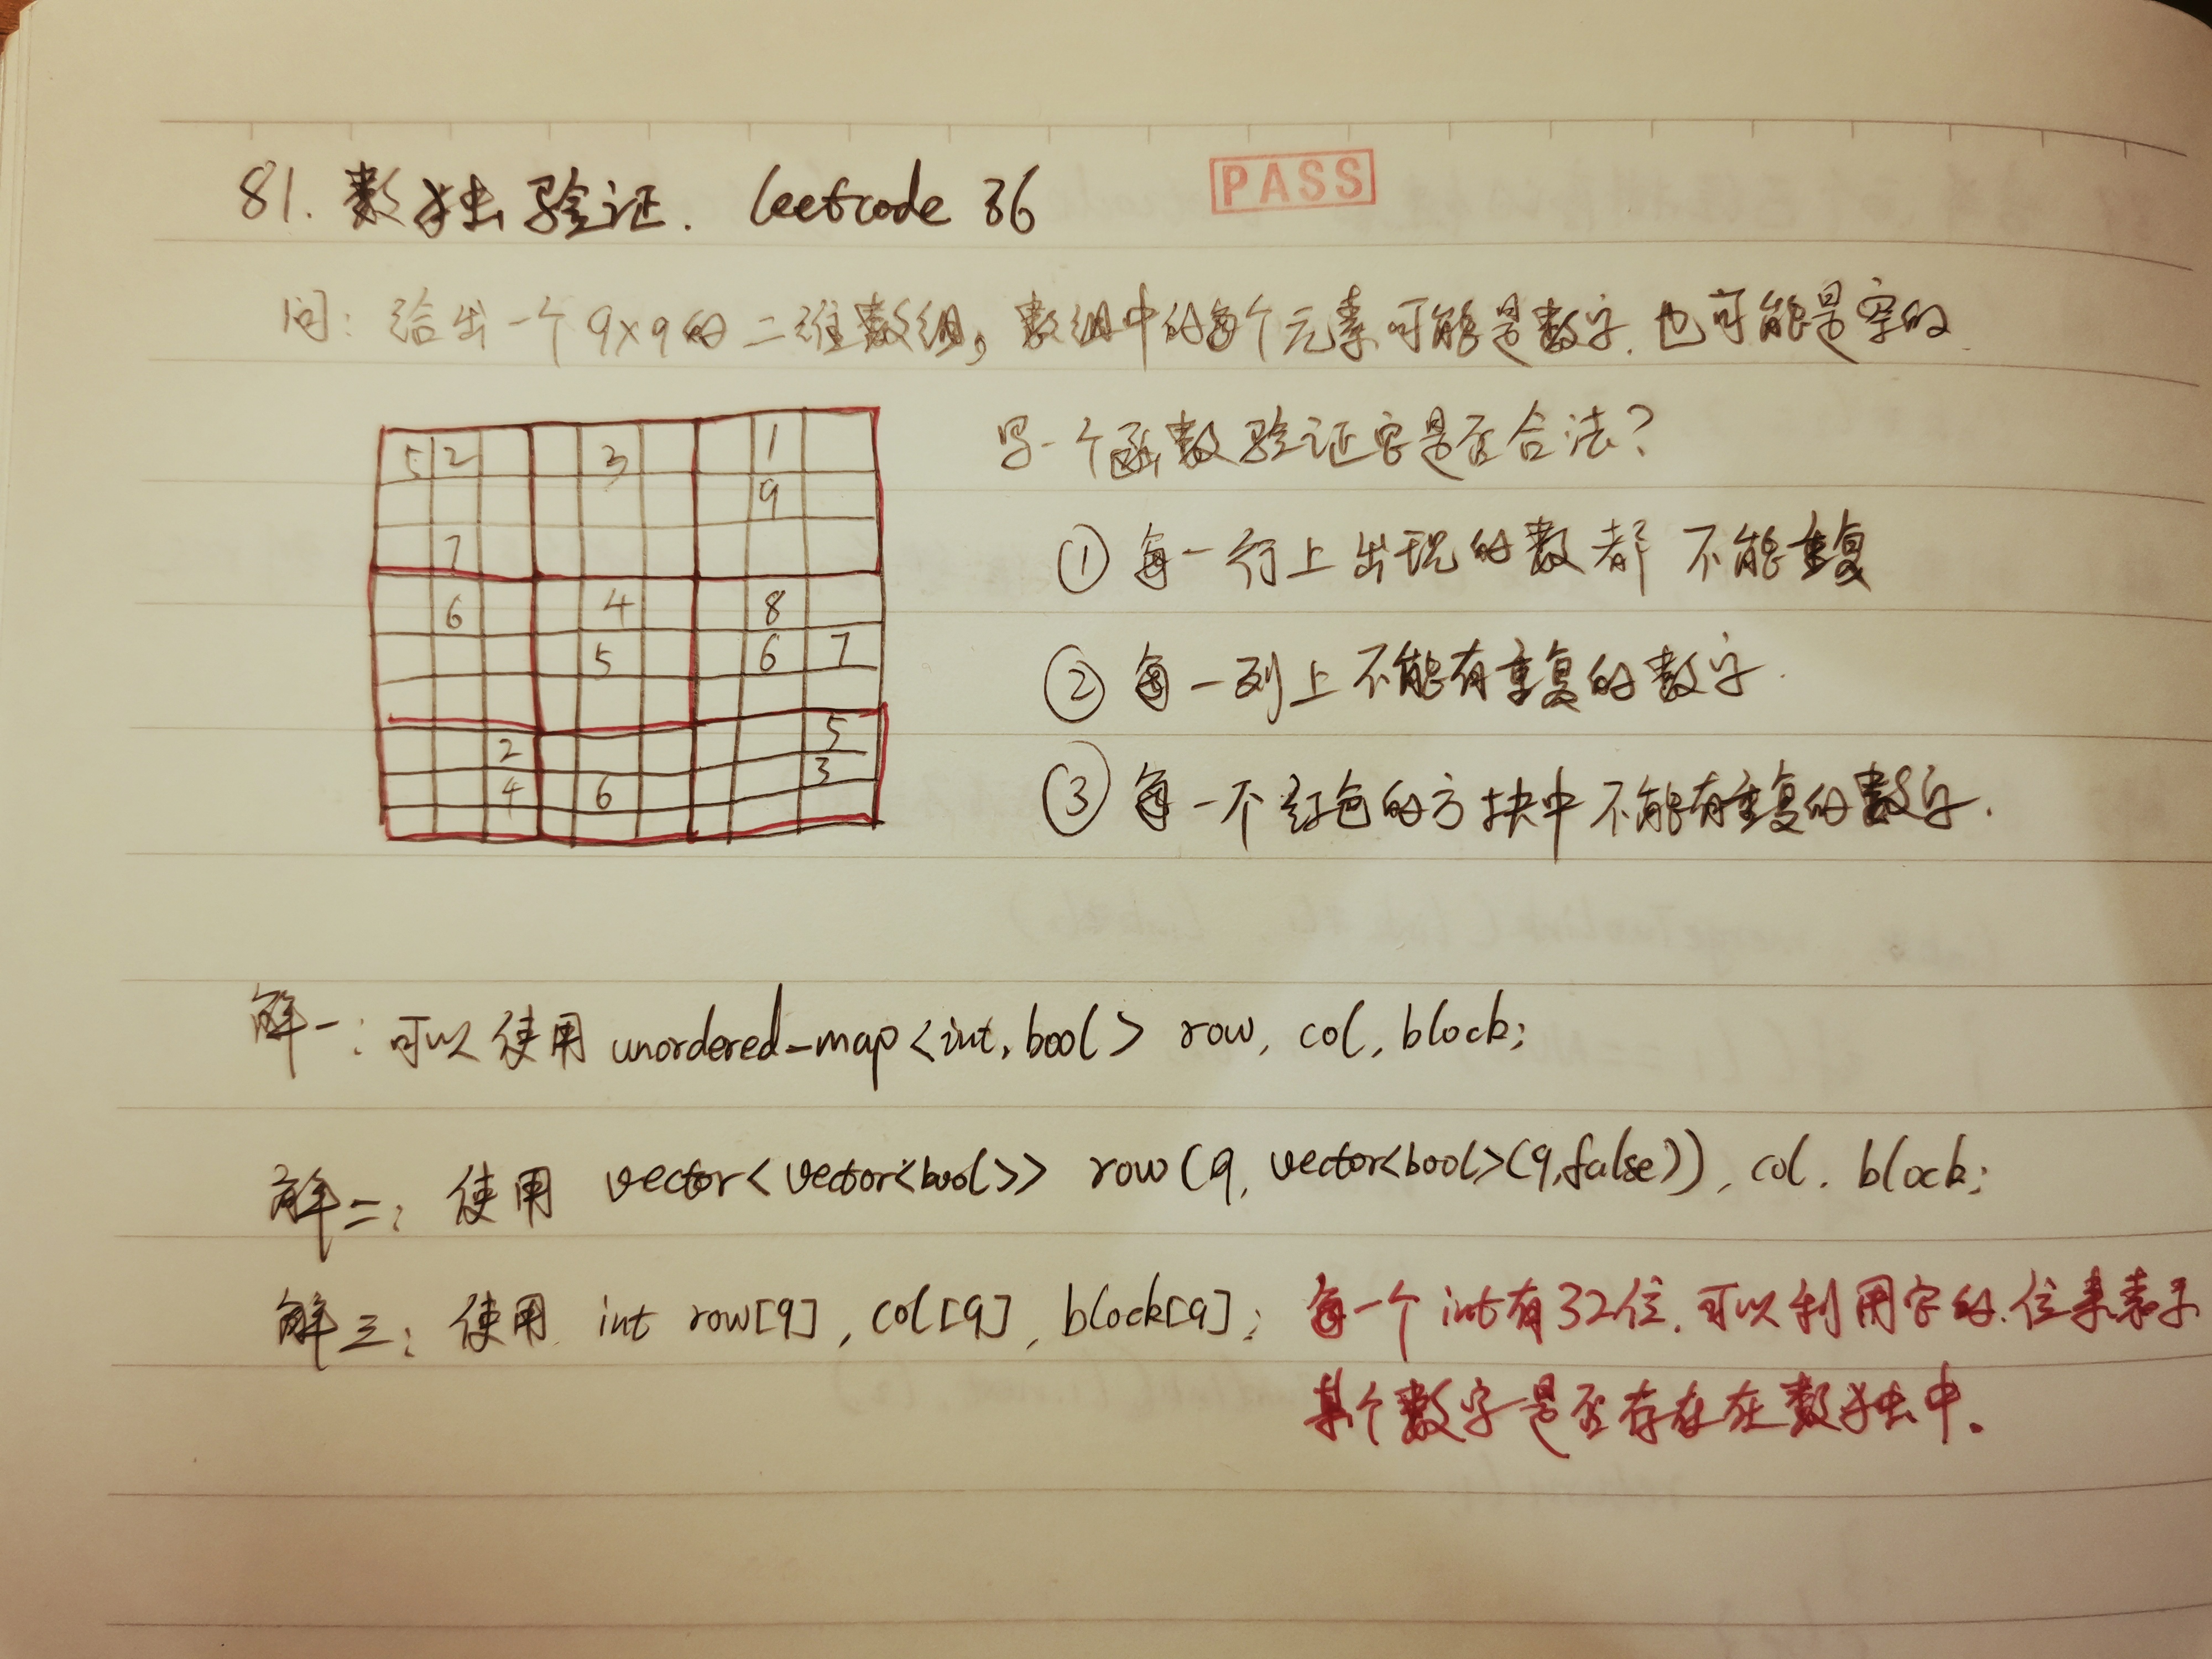 81. 数独验证. leetcode 36
PASS
问: 给出一个9×9的二维数组, 数组中的每个元素可能是数字. 也可能是空的.
写一个函数验证它是否合法?
① 每一行上出现的数都不能重复
② 每一列上不能有重复的数字.
③ 每一个红色的方块中不能有重复的数字.
5 2 3 1
9
7
6 4 8
5 6 7
2 5
4 6 3
解一: 可以使用 unordered_map<int, bool> row, col, block;
解二: 使用 vector<vector<bool>> row(9, vector<bool>(9,false)), col, block;
解三: 使用 int row[9], col[9], block[9]; 每一个int有32位. 可以利用它的位来表示
某个数字是否存在在数独中.